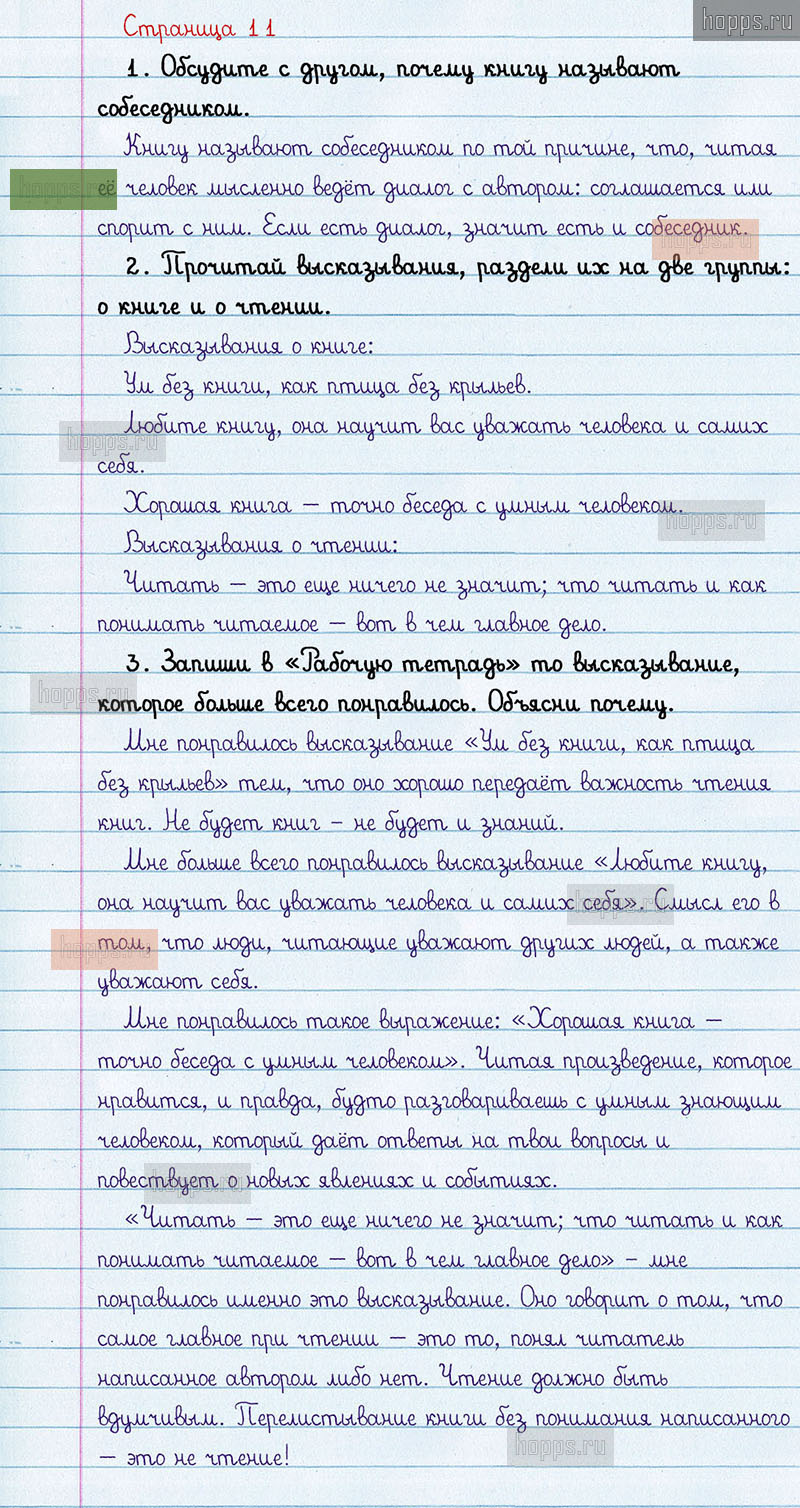 hopps.ru
Страница 11
1. Обсудите с другом, почему книгу называют
собеседником.
Книгу называют собеседником по той причине, что, читая
её человек мысленно ведёт диалог с автором: соглашается или
hopps.ru
спорит с ним. Если есть диалог, значит есть и собеседник.
hopps.ru
2. Прочитай высказывания, раздели их на две группы:
о книге и о чтении.
Высказывания о книге:
Ум без книги, как птица без крыльев.
Любите книгу, она научит вас уважать человека и самих
hopps.ru
себя.
Хорошая книга – точно беседа с умным человеком.
hopps.ru
Высказывания о чтении:
Читать – это еще ничего не значит; что читать и как
понимать читаемое – вот в чем главное дело.
3. Запиши в «Рабочую тетрадь» то высказывание,
hopps.ru
которое больше всего понравилось. Объясни почему.
Мне понравилось высказывание «Ум без книги, как птица
без крыльев» тем, что оно хорошо передаёт важность чтения
книг. Не будет книг – не будет и знаний.
Мне больше всего понравилось высказывание «Любите книгу,
она научит вас уважать человека и самих себя». Смысл его в
hopps.ru
том, что люди, читающие уважают других людей, а также
hopps.ru
уважают себя.
Мне понравилось такое выражение: «Хорошая книга –
точно беседа с умным человеком». Читая произведение, которое
нравится, и правда, будто разговариваешь с умным знающим
человеком, который даёт ответы на твои вопросы и
повествует о новых явлениях и событиях.
hopps.ru
«Читать – это еще ничего не значит; что читать и как
понимать читаемое – вот в чем главное дело» – мне
понравилось именно это высказывание. Оно говорит о том, что
самое главное при чтении – это то, понял читатель
написанное автором либо нет. Чтение должно быть
вдумчивым. Перелистывание книги без понимания написанного
hopps.ru
– это не чтение!